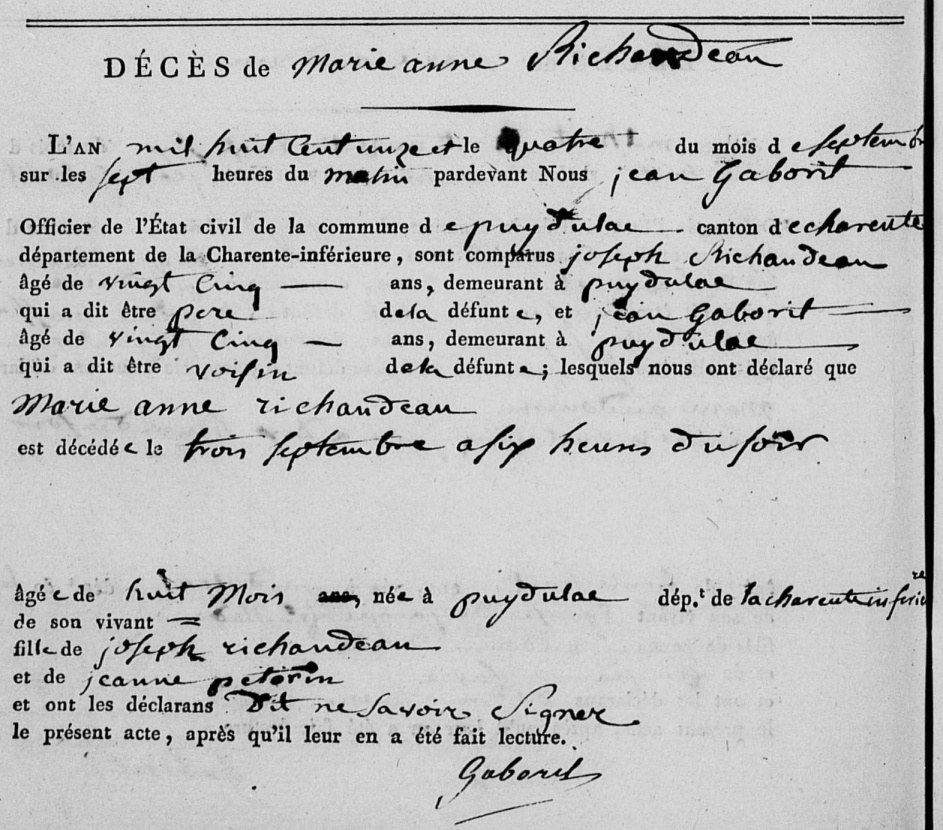 DÉCÈS de Marie anne Richaudeau
L'AN mil huit Cent unze et le quatre du mois d e septembre
sur les sept heures du matin pardevant Nous jean Gaborit
Officier de l'État civil de la commune d e puydulac canton d e charente
département de la Charente-inférieure, sont comparus joseph Richaudeau
âgé de vingt Cinq ans, demeurant à puydulac
qui a dit être pere de la défunte, et jean Gaborit
âgé de vingt Cinq ans, demeurant à puydulac
qui a dit être voisin de la défunte; lesquels nous ont déclaré que
Marie anne richaudeau
est décédée le trois septembre a six heures du soir
âgée de huit Mois ans, née à puydulac dép.t de la charente inferieure
de son vivant
fille de joseph richaudeau
et de jeanne
et ont les déclarans dit ne savoir Signer
le présent acte, après qu'il leur en a été fait lecture.
Gaborit